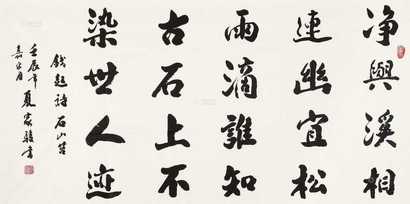 净與溪相
連幽宜松
雨滴誰知
古石上不
染世人迹
錢起詩石上苔
壬辰年夏家駿書